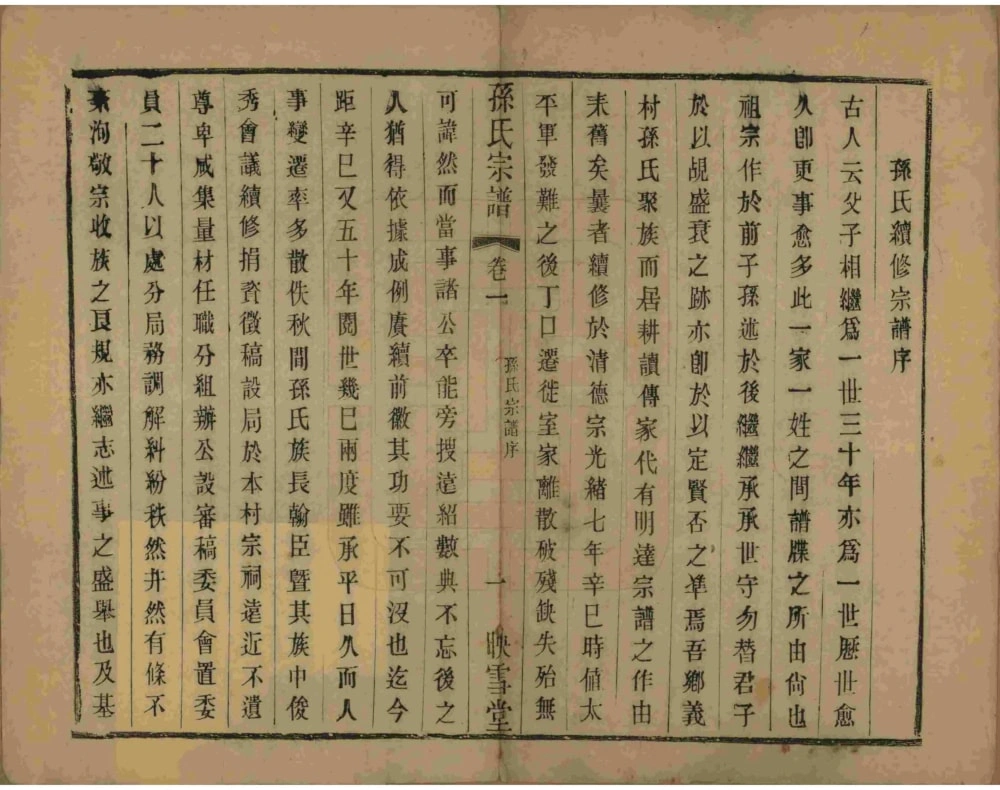 孫氏續修宗譜序
古人云父子相繼爲一世三十年亦爲一世歷世愈
久卽更事愈多此一家一姓之間譜牒之所由尙也
祖宗作於前子孫述於後繼繼承承世守勿替君子
於以覘盛衰之跡亦卽於以定賢否之準焉吾鄉義
村孫氏聚族而居耕讀傳家代有明達宗譜之作由
来舊矣曩者續修於清德宗光緒七年辛巳時値太
平軍發難之後丁口遷徙室家離散破殘缺失殆無
孫氏宗譜
卷一
孫氏宗譜序
一
映雪堂
可諱然而當事諸公卒能旁搜遠紹數典不忘後之
人猶得依據成例賡續前徽其功要不可沒也迄今
距辛巳又五十年閱世幾巳兩度雖承平日久而人
事變遷率多散佚秋間孫氏族長翰臣暨其族中俊
秀會議續修捐資徵稿設局於本村宗祠遠近不遺
尊卑咸集量材任職分組辦公設審稿委員會置委
員二十人以處分局務調解糾紛秩然井然有條不
紊洵敬宗收族之良規亦繼志述事之盛舉也及基